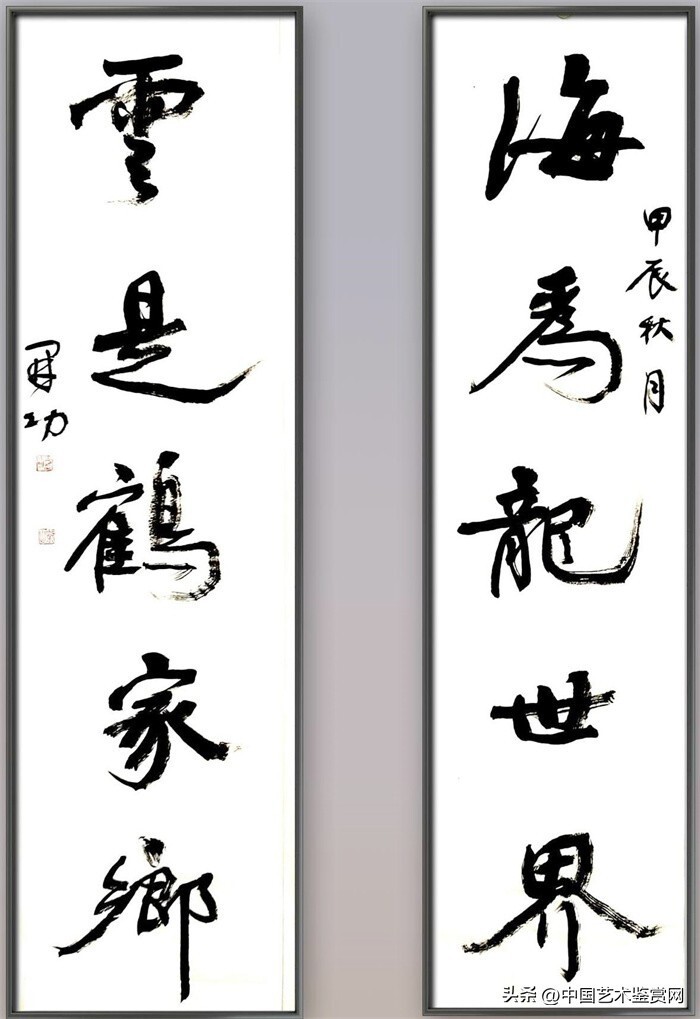 甲辰秋月
海爲龍世界
雲是鶴家鄉
功
头条 @中国艺术鉴赏网